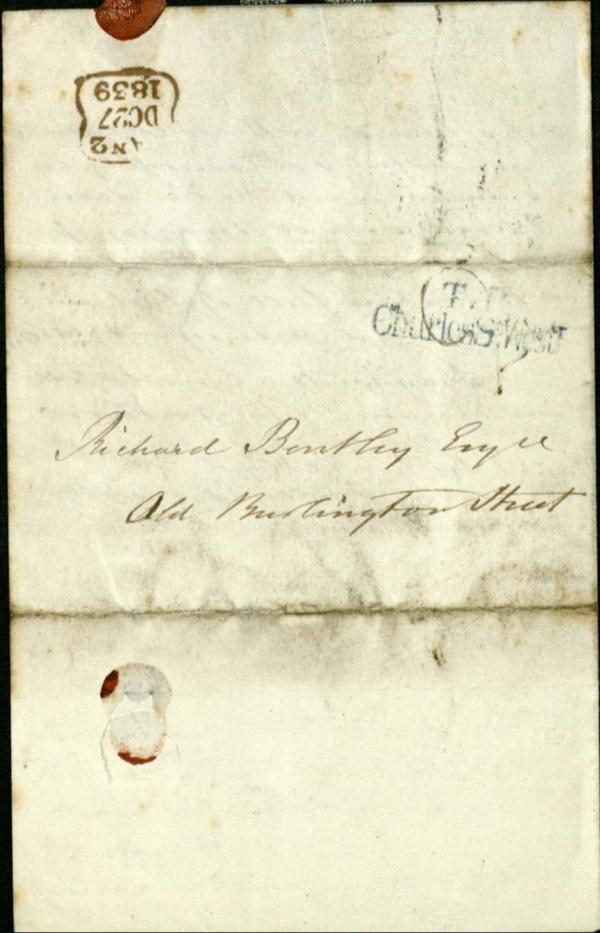 1839
DC27
AN2
T.P
Charles St West
Richard Bentley Esqre
Old Burlington Street